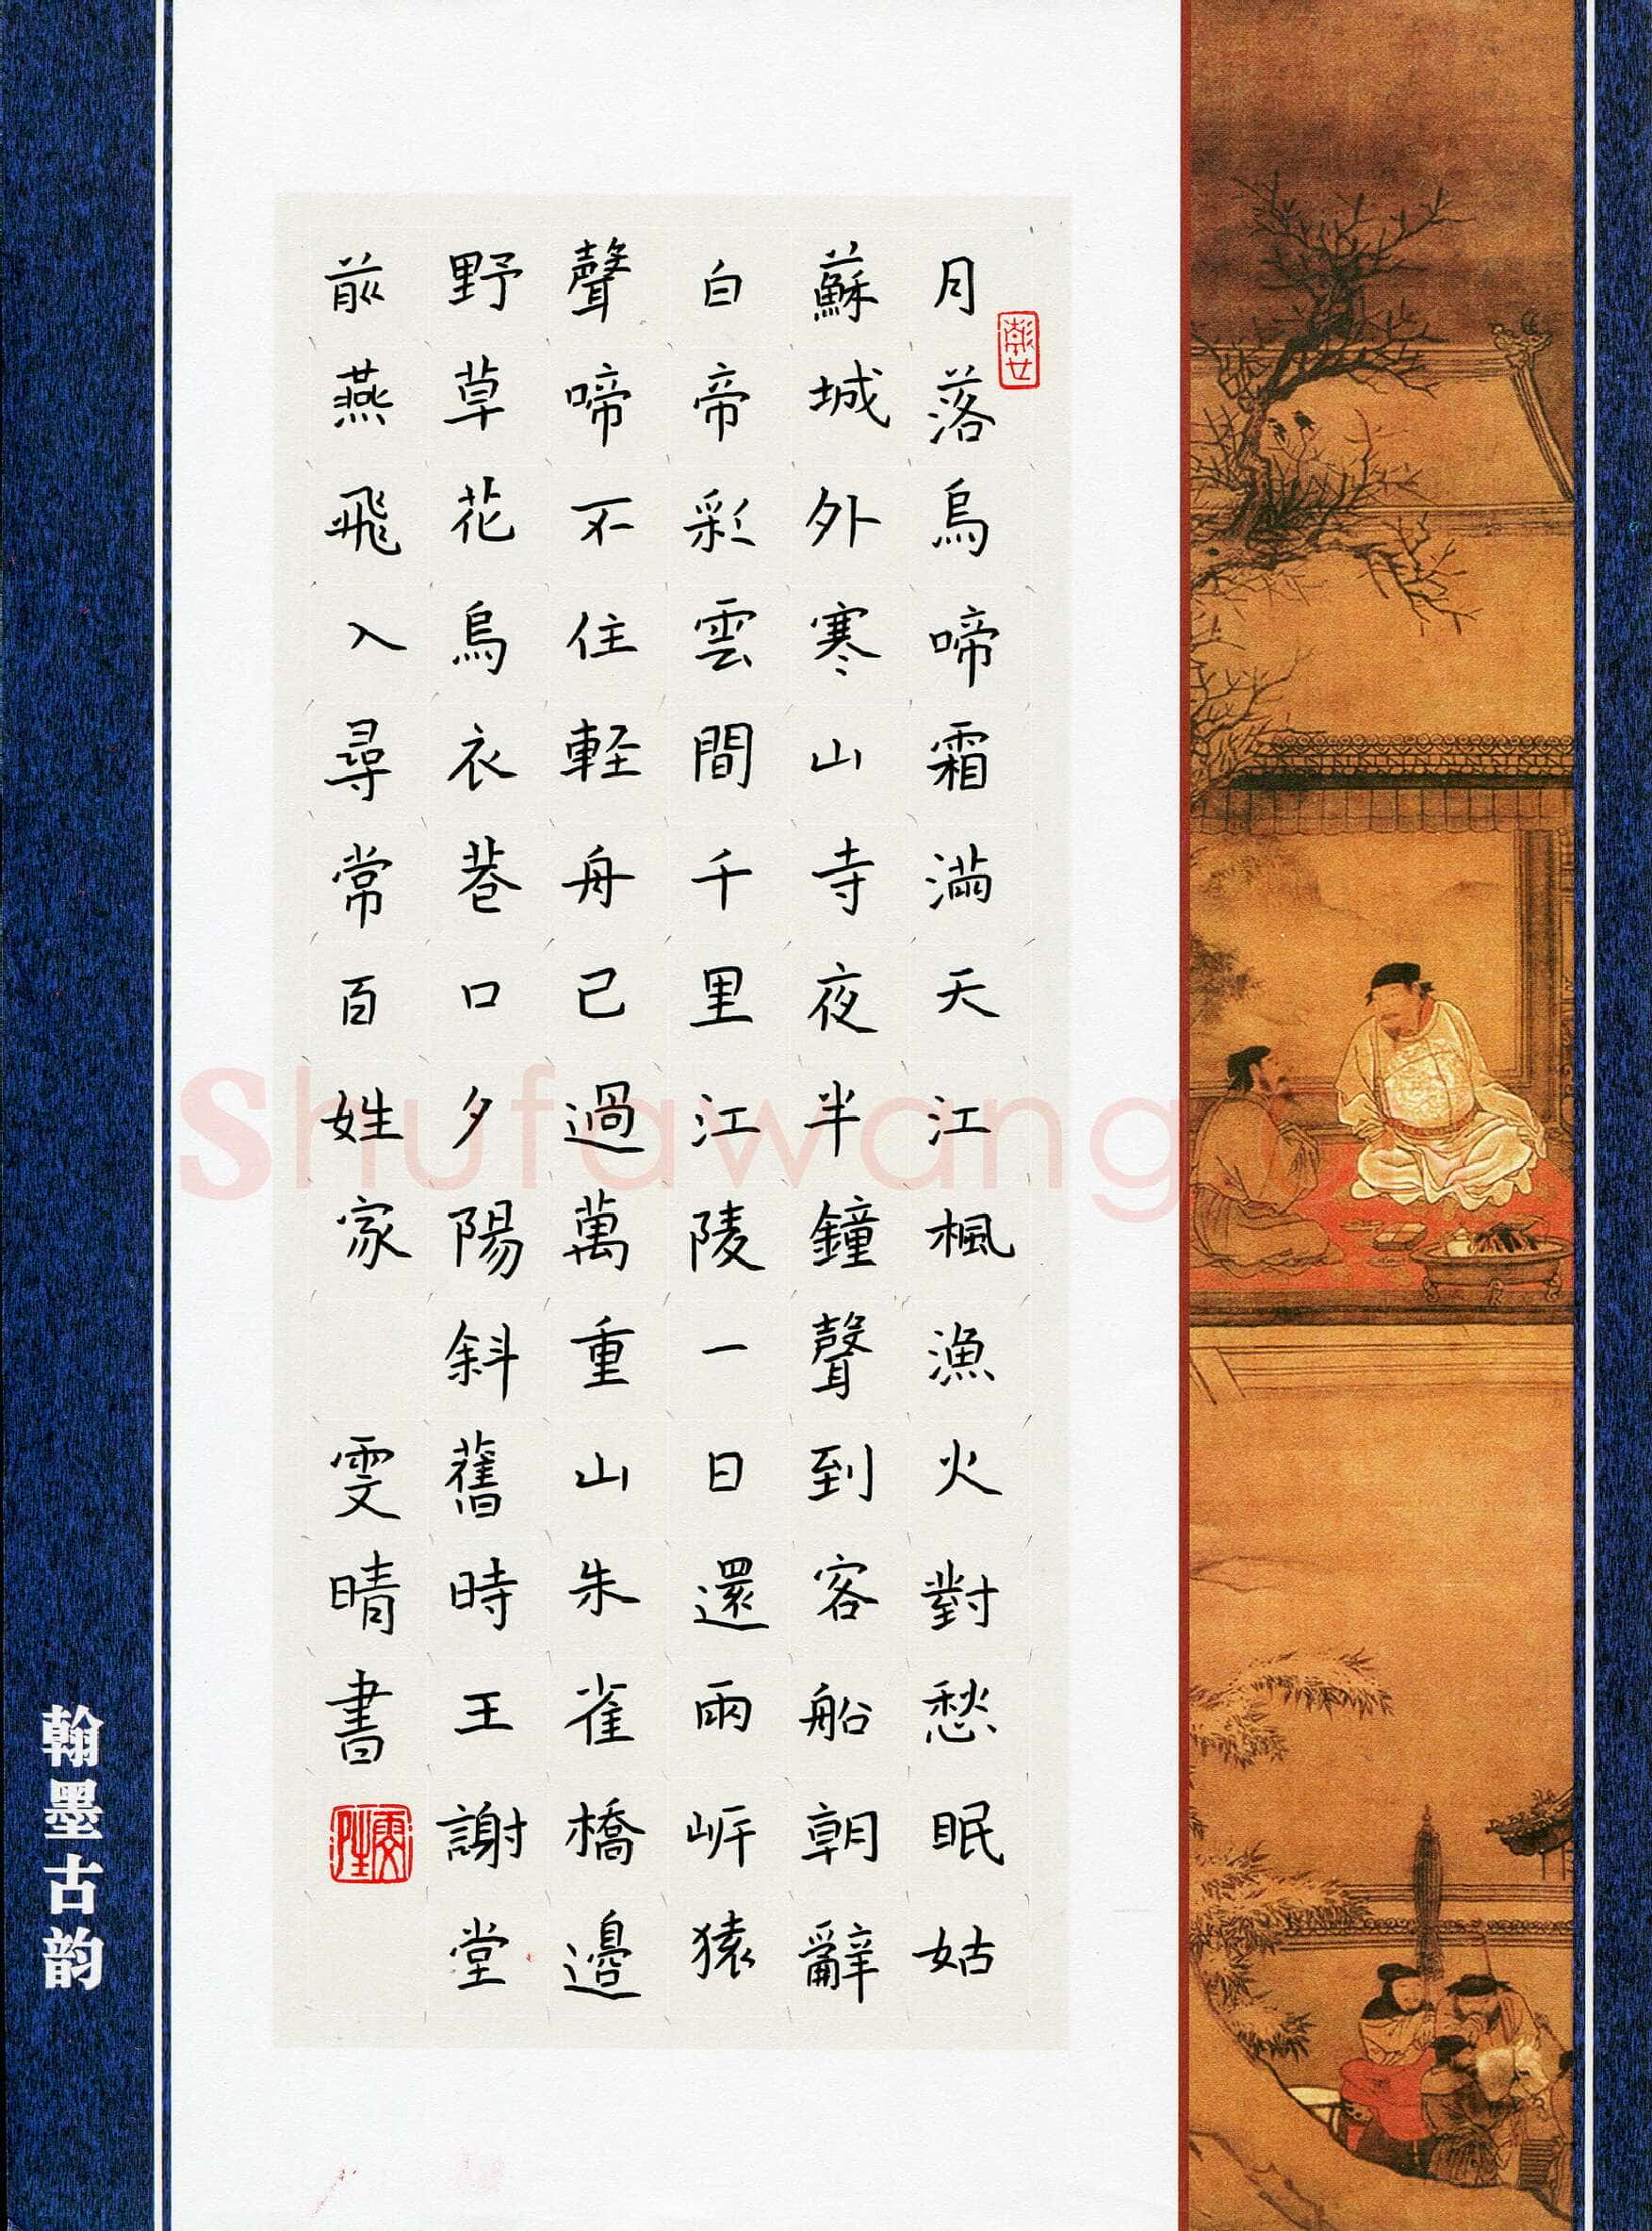 月落烏啼霜滿天江楓漁火對愁眠姑
蘇城外寒山寺夜半鐘聲到客船朝辭
白帝彩雲間千里江陵一日還兩岍猿
聲啼不住軽舟已過萬重山朱雀橋邊
野草花烏衣巷口夕陽斜舊時王謝堂
前燕飛入尋常百姓家 雯晴書
翰墨古韵
Shufawang